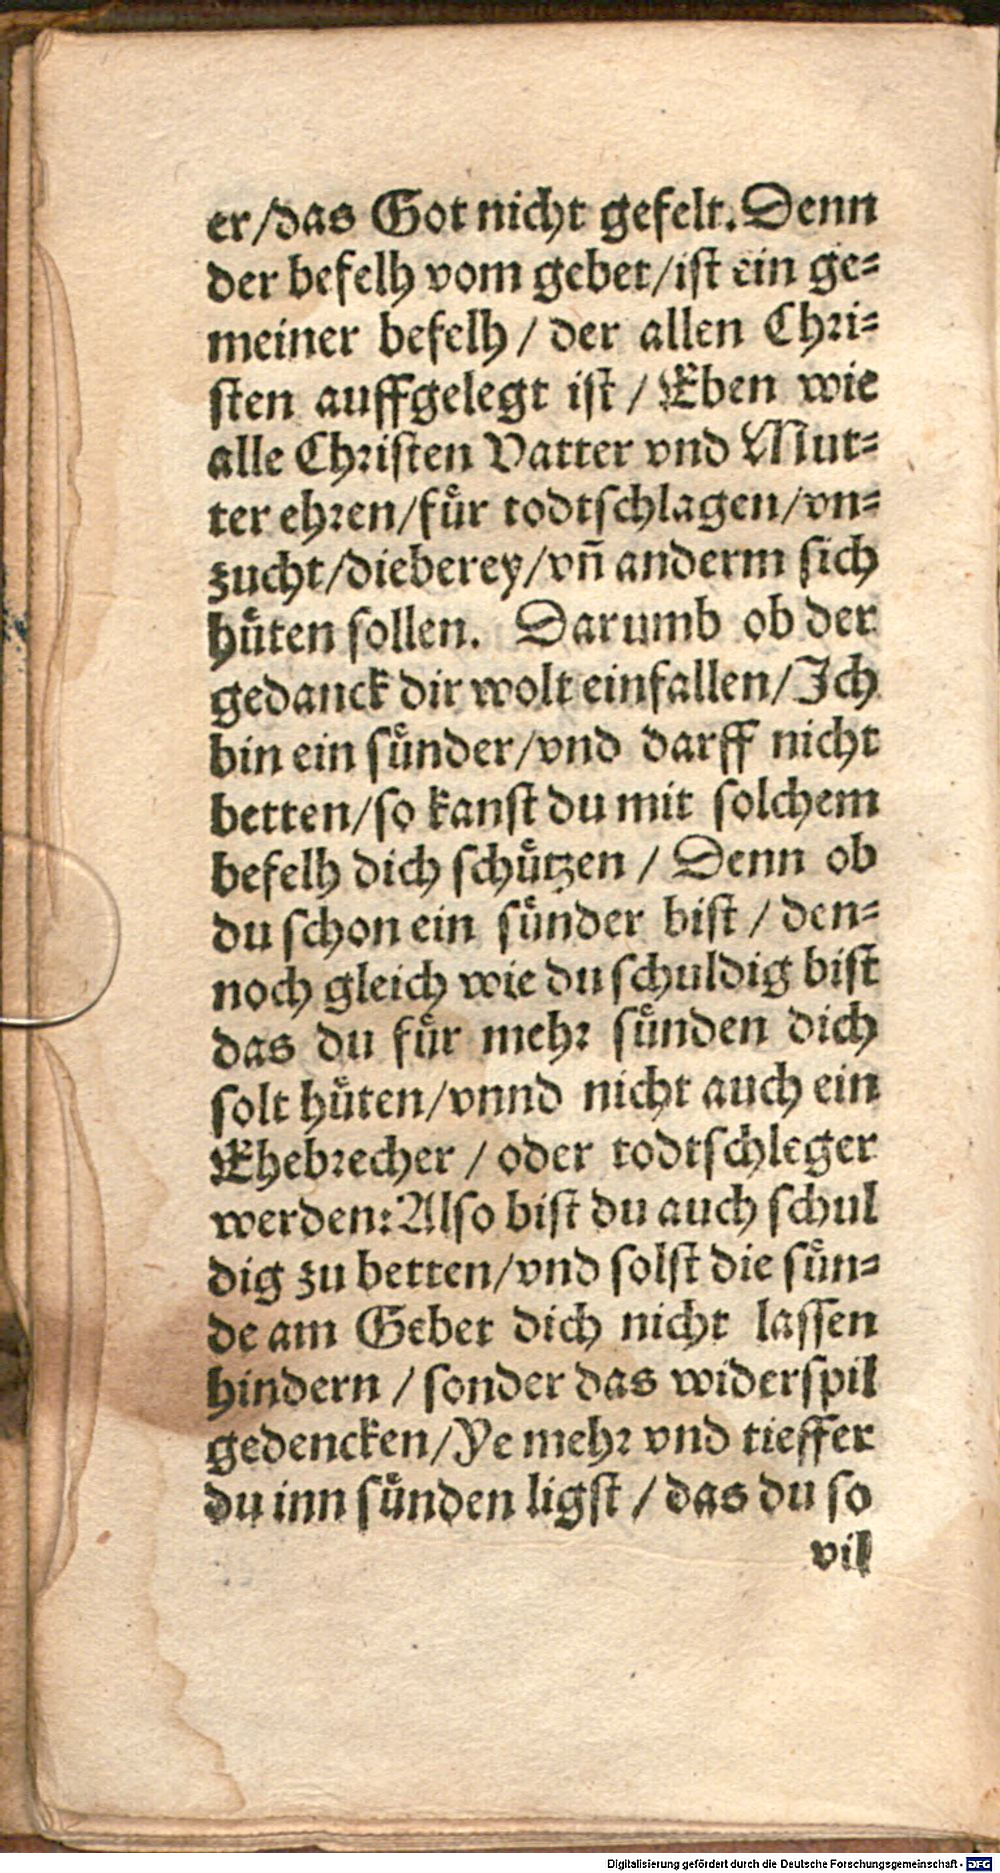 er/das Got nicht gefelt. Denn
der befelh vom gebet/ist ein ge⸗
meiner befelh / der allen Chri⸗
sten auffgelegt ist / Eben wie
alle Christen Vatter vnd Mut⸗
ter ehren/fuͤr todtschlagen/vn⸗
zucht/dieberey/vñ anderm sich
huͤten sollen. Darumb ob der
gedanck dir wolt einfallen/Ich
bin ein suͤnder/vnd darff nicht
betten/so kanst du mit solchem
befelh dich schuͤtzen / Denn ob
du schon ein suͤnder bist / den⸗
noch gleich wie du schuldig bist
das du fuͤr mehr suͤnden dich
solt huͤten/vnnd nicht auch ein
Ehebrecher / oder todtschleger
werden: Also bist du auch schul
dig zu betten/vnd solst die suͤn⸗
de am Gebet dich nicht lassen
hindern / sonder das widerspil
gedencken/Ye mehr vnd tieffer
du inn suͤnden ligst / das du so
vil
Digitalisierung gefördert durch die Deutsche Forschungsgemeinschaft - DFG